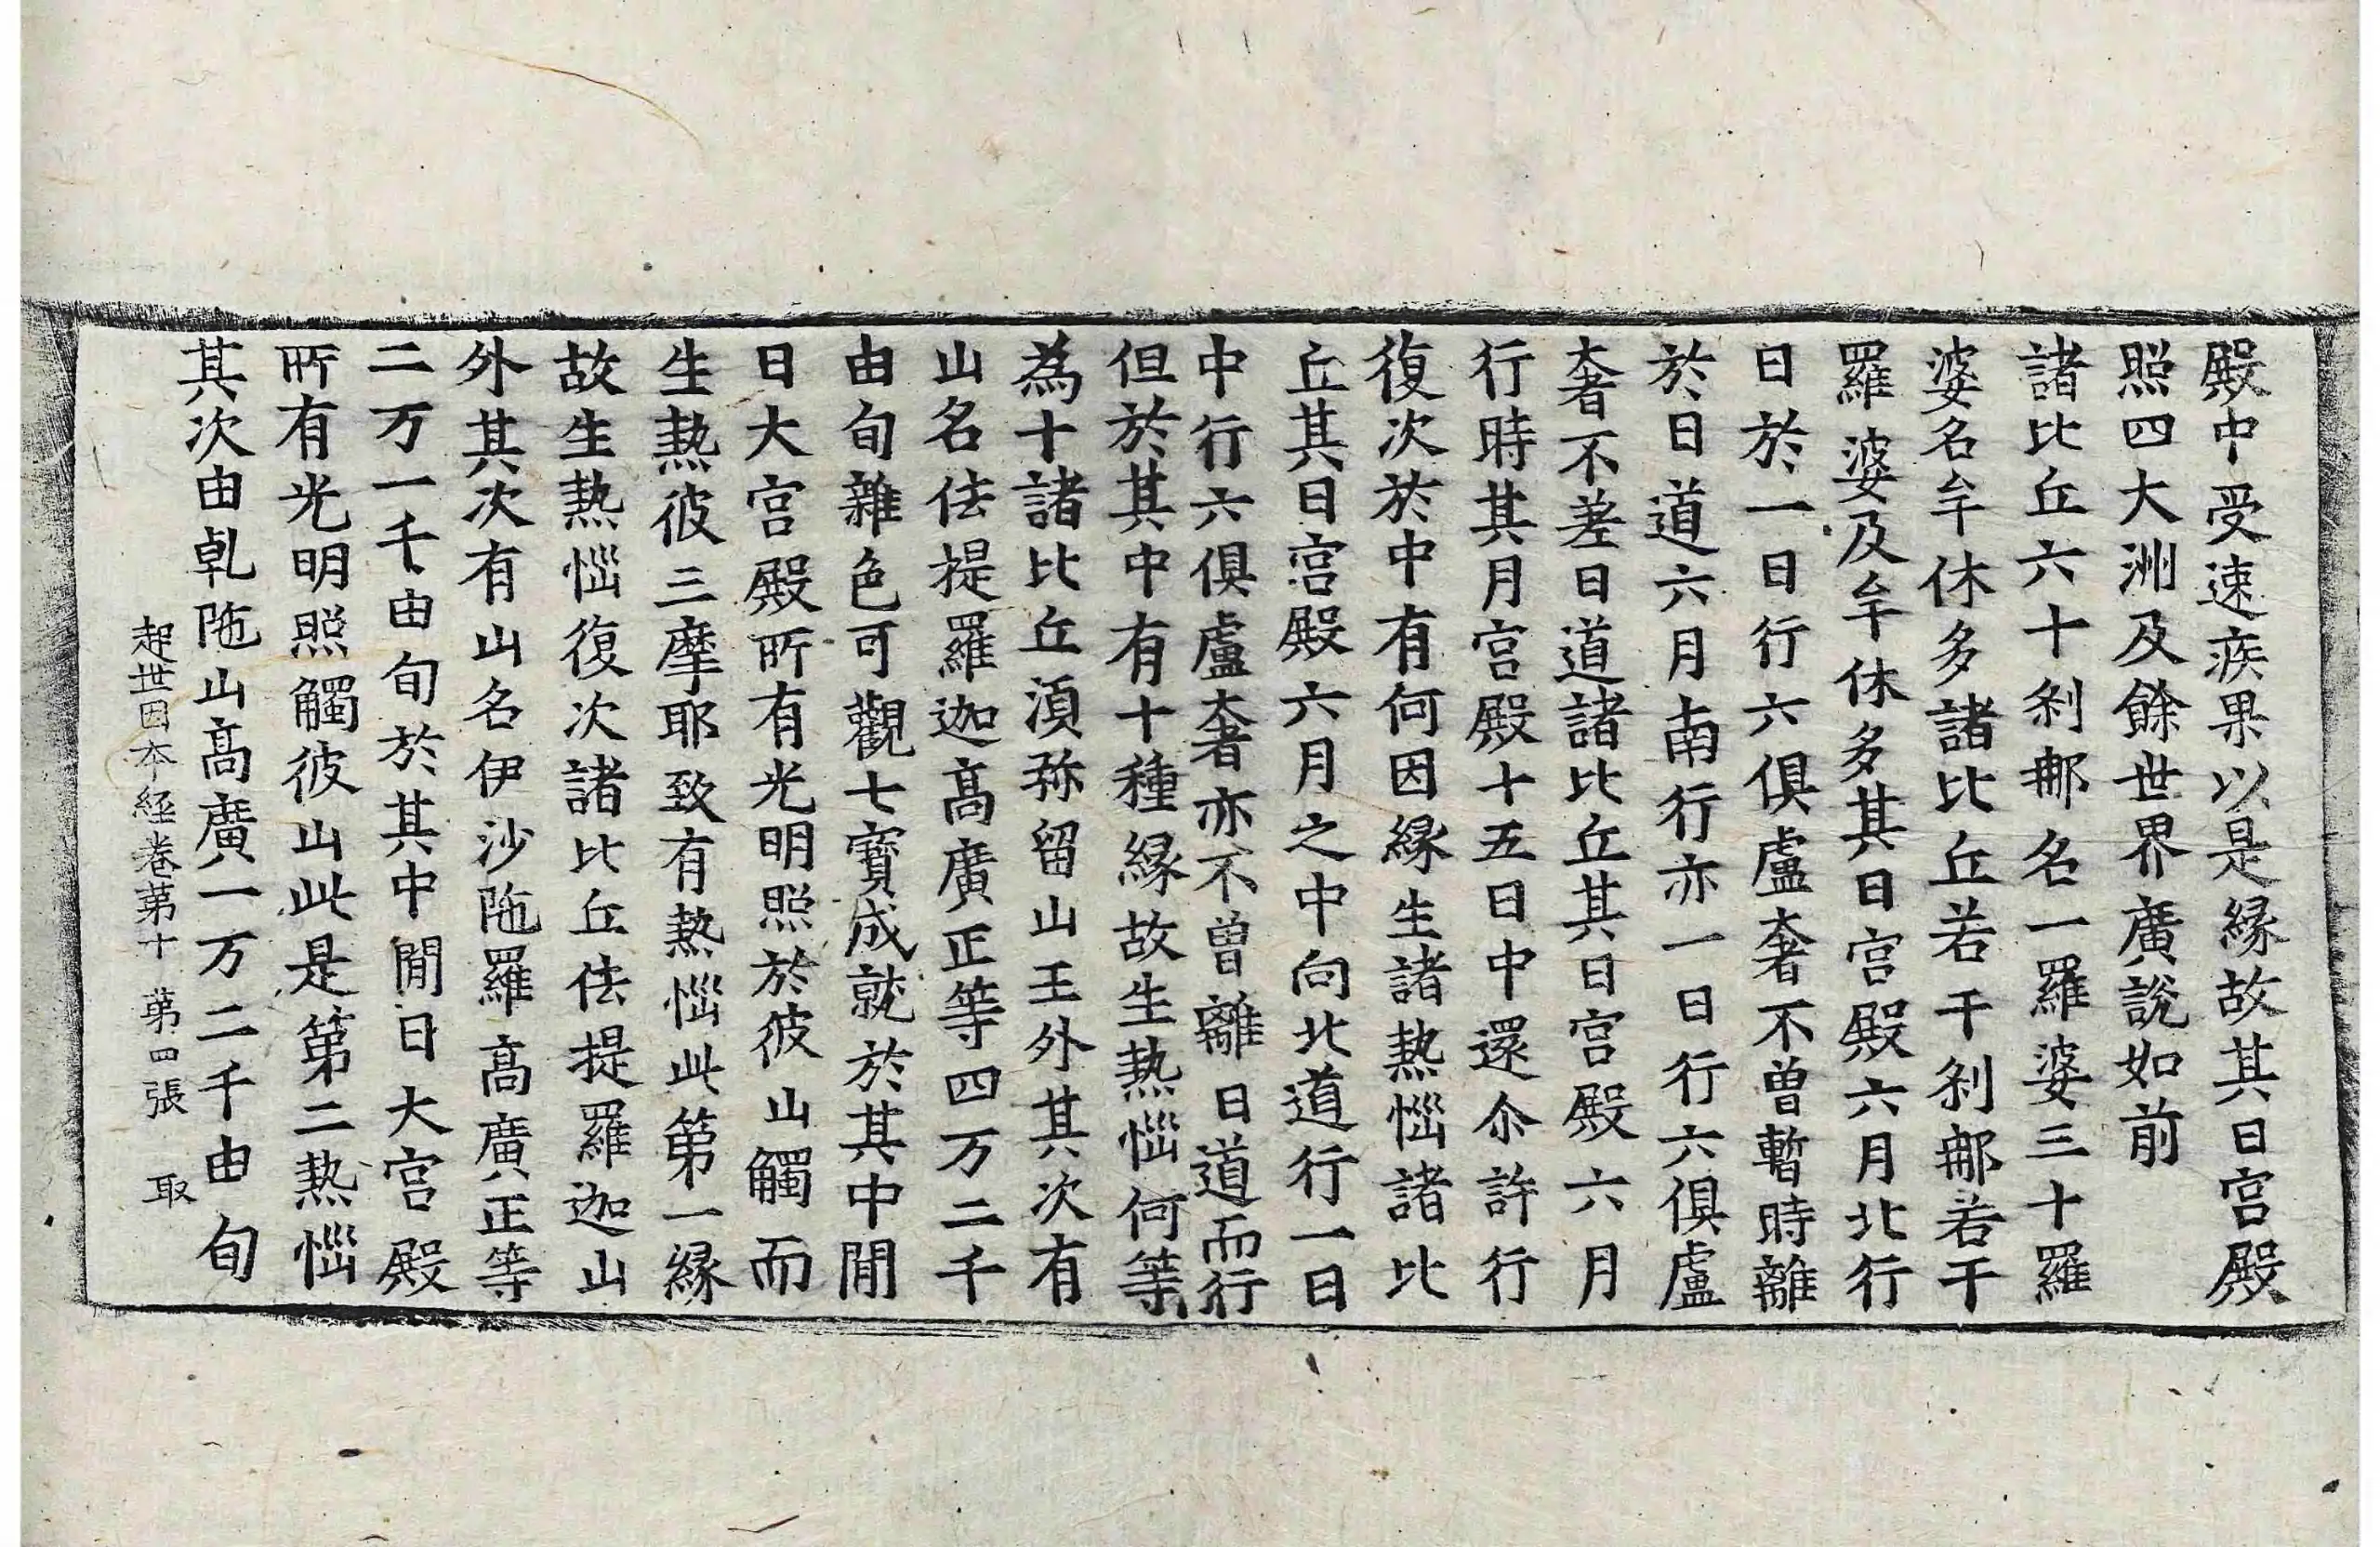 殿中受速疾果以是縁故其日宫殿
照四大洲及餘世界廣說如前
諸比丘六十刹那名一羅婆三十羅
婆名牟休多諸比丘若干刹那若干
羅婆及牟休多其日宫殿六月北行
日於一日行六俱盧奢不曾暫時離
於日道六月南行亦一日行六俱盧
奢不差日道諸比丘其日宫殿六月
行時其月宫殿十五日中還尒許行
復次於中有何因縁生諸熱惱諸比
丘其日宫殿六月之中向北道行一日
中行六俱盧奢亦不曾離日道而行
但於其中有十種縁故生熱惱何等
為十諸比丘湏弥留山王外其次有
山名佉提羅迦髙廣正等四万二千
由旬雜色可觀七寶成就於其中閒
日大宫殿所有光明照於彼山觸而
生熱彼三摩耶致有熱惱此第一縁
故生熱惱復次諸比丘佉提羅迦山
外其次有山名伊沙陁羅髙廣正等
二万一千由旬於其中閒日大宫殿
所有光明照觸彼山此是第二熱惱
其次由乹陁山髙廣一万二千由旬
起世因本經卷第十　第四張　取